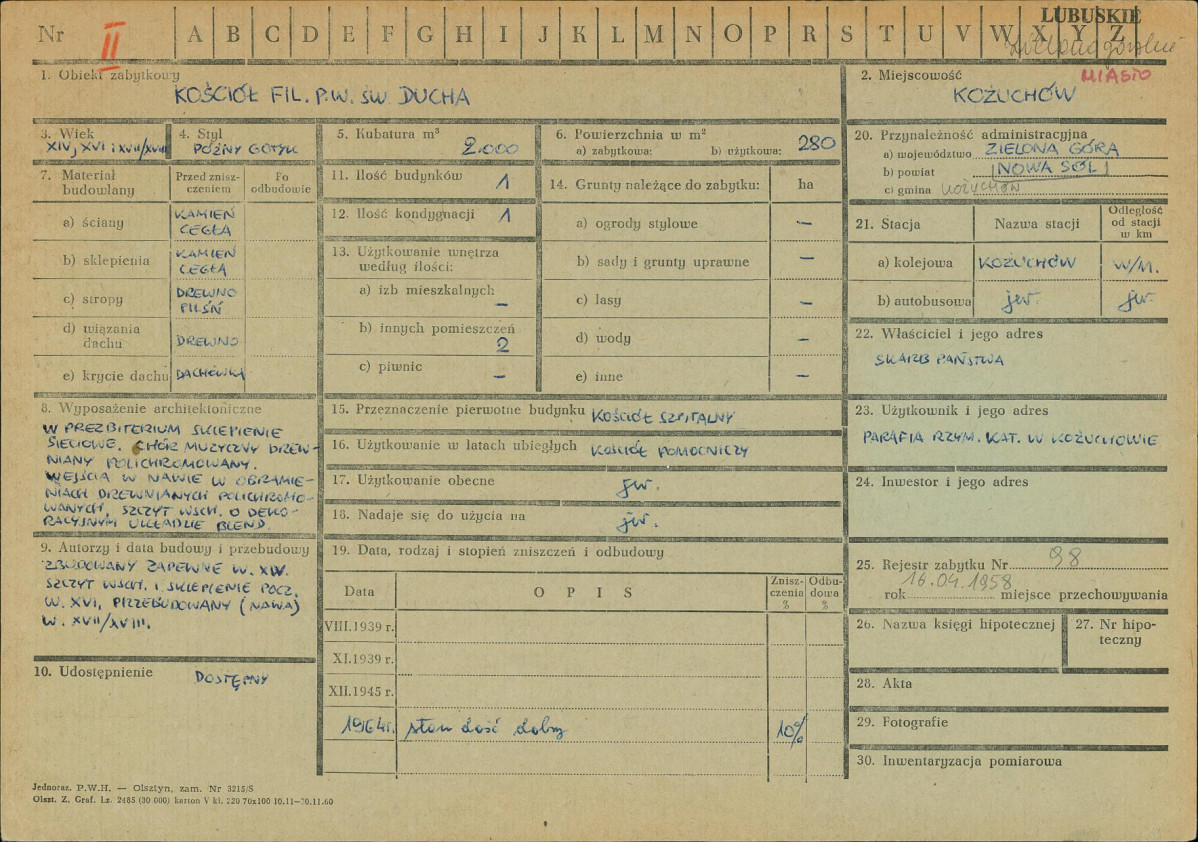 Nr II A B C D E F G H I J K L M N O P R S T U V W X Y Z
LUBUSKIE
1. Obiekt zabytkowy
KOŚCIÓŁ FIL. P.W. ŚW DUCHA
2. Miejscowość
MIASTO
KOŻUCHÓW
3. Wiek
XIV, XVI i XVII/XVIII
4. Styl
PÓŹNY GOTYK
5. Kubatura m³
2.000
6. Powierzchnia w m²
a) zabytkowa: b) użytkowa: 280
20. Przynależność administracyjna
a) województwo ZIELONA GÓRA
b) powiat NOWA SÓL
c) gmina KOŻUCHÓW
7. Materiał budowlany
Przed zniszczeniem
Po odbudowie
a) ściany KAMIEŃ
CEGŁA
b) sklepienia KAMIEŃ
CEGŁA
c) stropy DREWNO
PILŚŃ
d) wiązania dachu DREWNO
e) krycie dachu DACHÓWKA
11. Ilość budynków 1
12. Ilość kondygnacji 1
13. Użytkowanie wnętrza
według ilości:
a) izb mieszkalnych —
b) innych pomieszczeń
2
c) piwnic —
14. Grunty należące do zabytku: ha
a) ogrody stylowe —
b) sady i grunty uprawne —
c) lasy —
d) wody —
e) inne —
21. Stacja
Nazwa stacji
Odległość
od stacji
w km
a) kolejowa KOŻUCHÓW W/M.
b) autobusowa jw. jw.
22. Właściciel i jego adres
SKARB PAŃSTWA
8. Wyposażenie architektoniczne
W PREZBITERIUM SKLEPIENIE
SIECIOWE. CHÓR MUZYCZNY DREW-
NIANY POLICHROMOWANY.
WEJŚCIA W NAWIE W OBRAMIE-
NIACH DREWNIANYCH POLICHROMO-
WANYCH, SZCZYT WSCH. O DEKO-
RACYJNYM UKŁADZIE BLEND.
15. Przeznaczenie pierwotne budynku KOŚCIÓŁ SZPITALNY
16. Użytkowanie w latach ubiegłych KOŚCIÓŁ POMOCNICZY
17. Użytkowanie obecne jw.
18. Nadaje się do użycia na jw.
23. Użytkownik i jego adres
PARAFIA RZYM. KAT. W KOŻUCHOWIE
24. Inwestor i jego adres
9. Autorzy i data budowy i przebudowy
ZBUDOWANY ZAPEWNE W. XIV.
SZCZYT WSCH. I SKLEPIENIE POCZ.
W. XVI, PRZEBUDOWANY (NAWA)
W. XVII/XVIII.
10. Udostępnienie DOSTĘPNY
19. Data, rodzaj i stopień zniszczeń i odbudowy
Data
OPIS
Znisz-
czenia
%
Odbu-
dowa
%
VIII.1939 r.
XI.1939 r.
XII.1945 r.
1964r. stan dość dobry 10%
25. Rejestr zabytku Nr 98
rok 16.04.1958 miejsce przechowywania
26. Nazwa księgi hipotecznej
27. Nr hipo-
teczny
28. Akta
29. Fotografie
30. Inwentaryzacja pomiarowa
Jednoraz. P.W.H. — Olsztyn, zam. Nr 3215/S
Olszt. Z. Graf. Lz. 2485 (30 000) karton V kl. 220 70x100 10.11—30.11.60